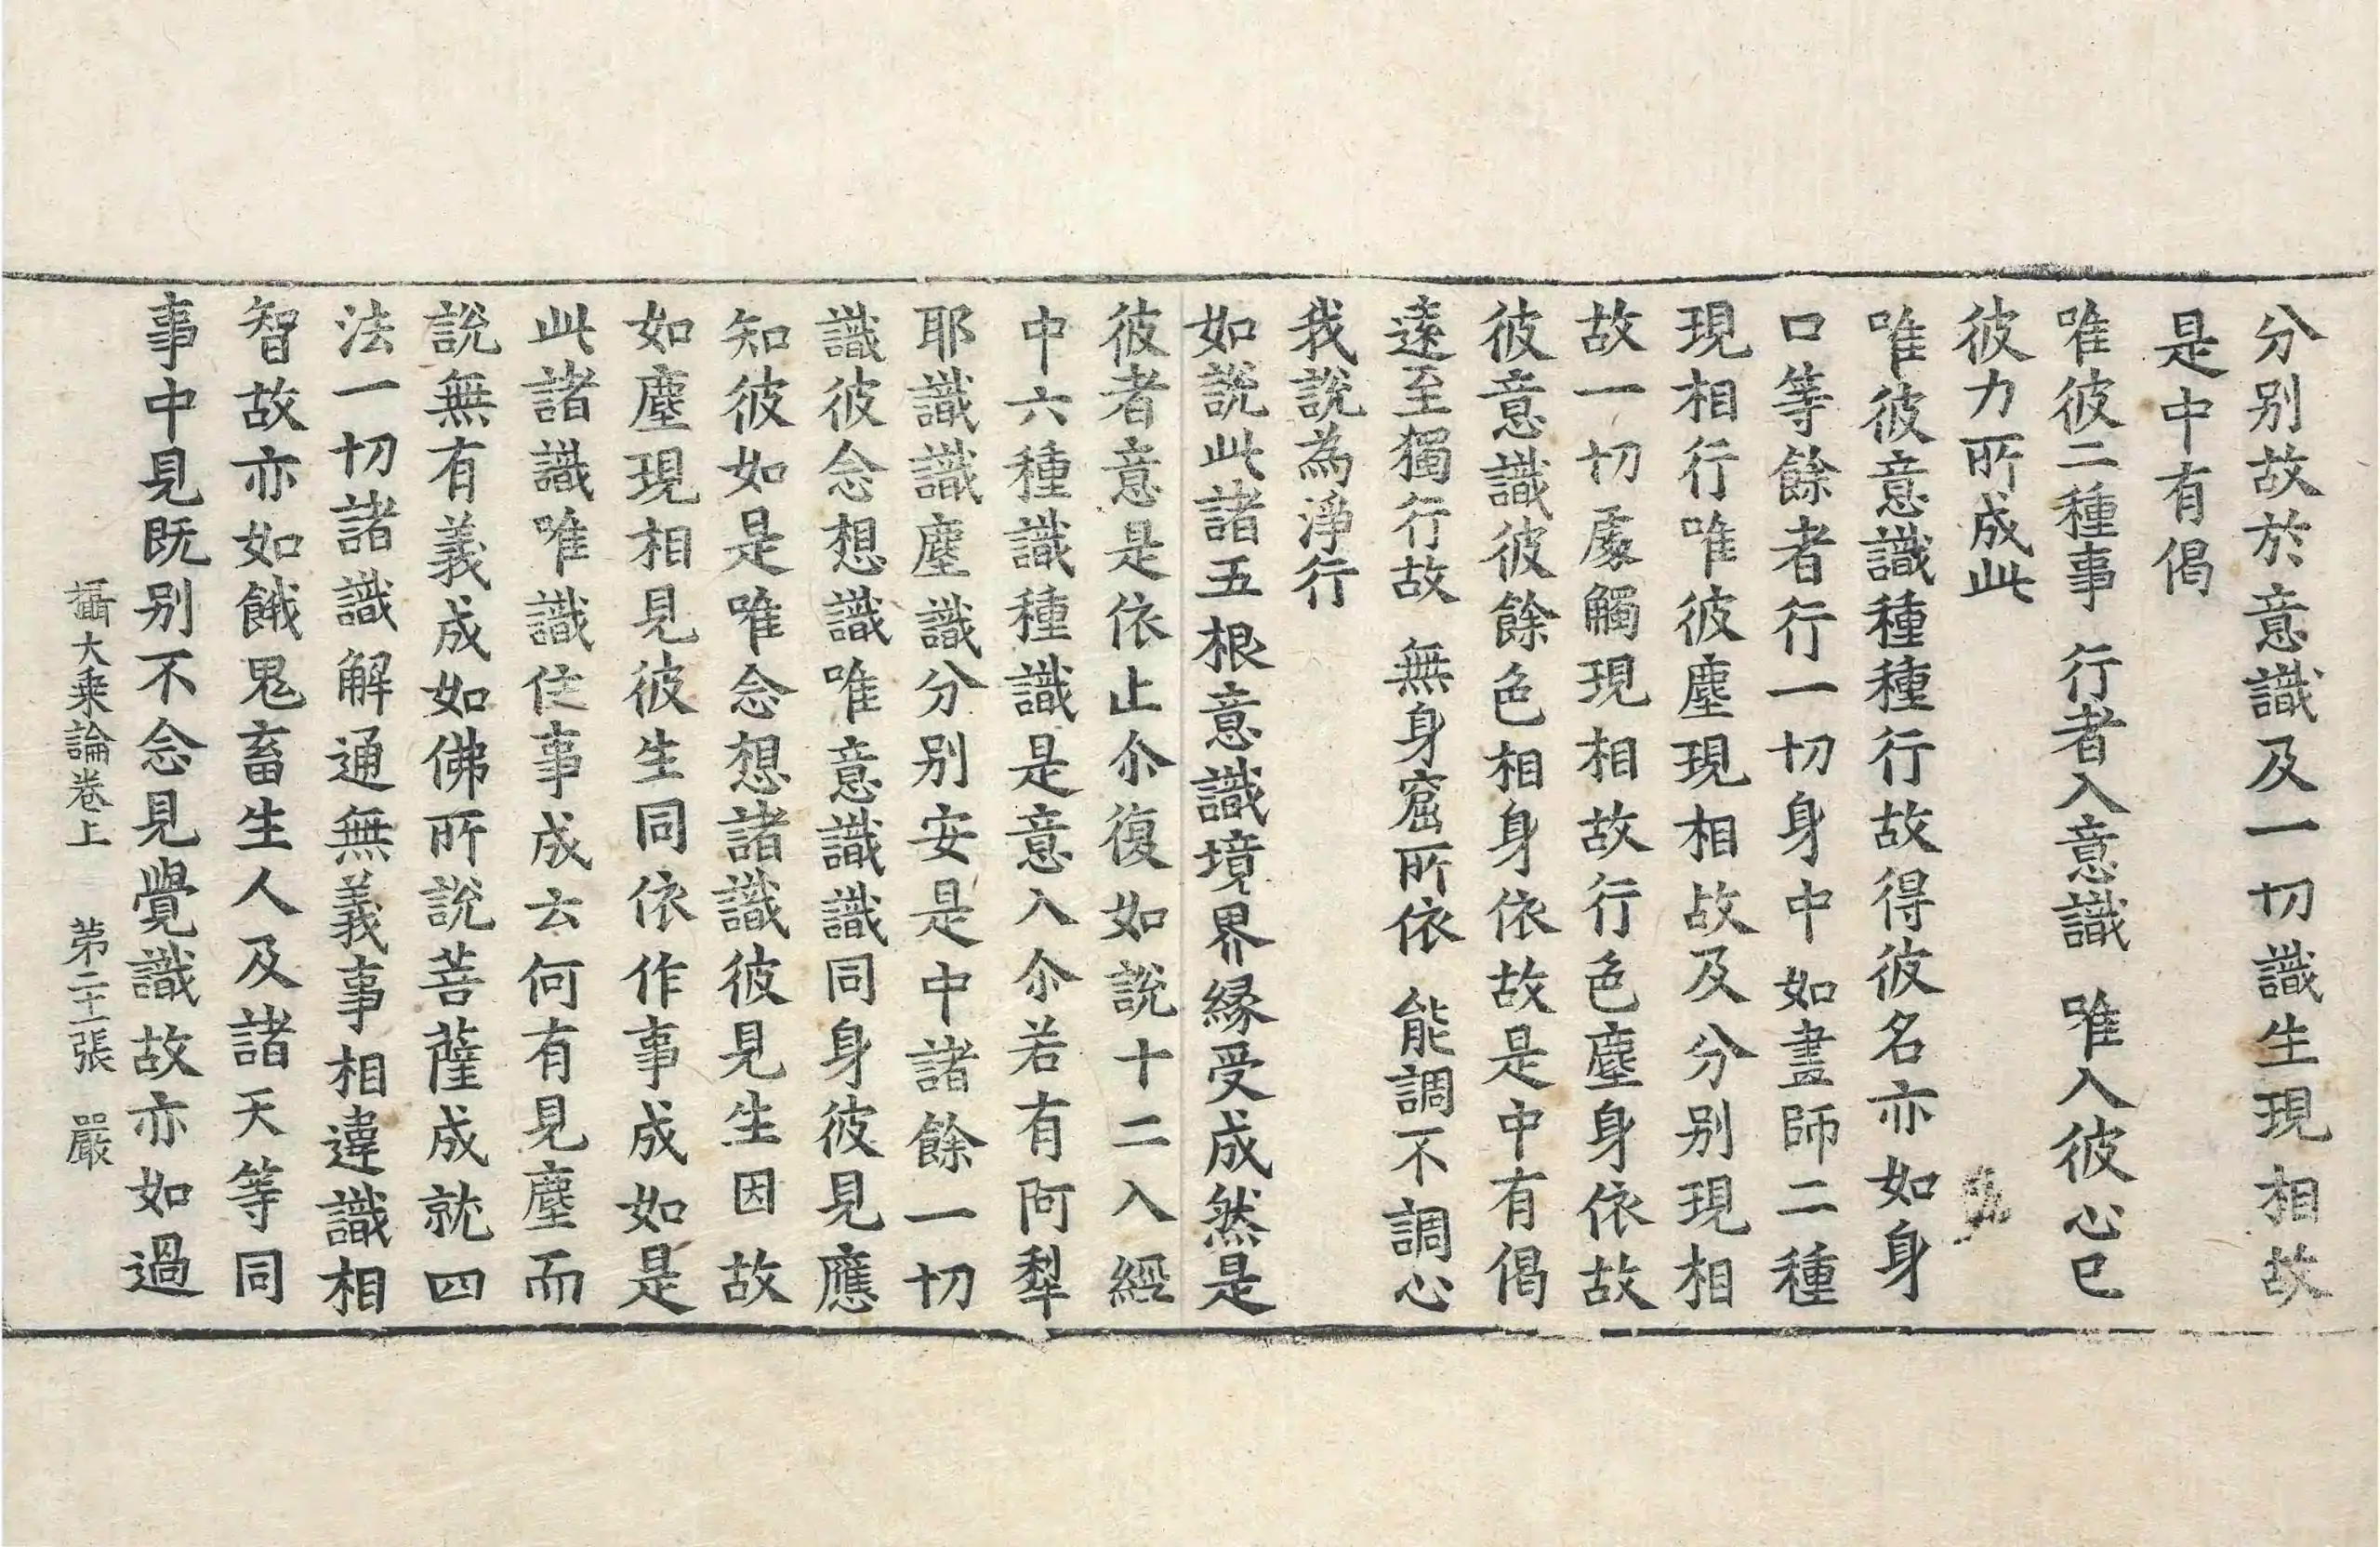 分別故於意識及一切識生現相故
是中有偈
唯彼二種事 行者入意識 唯入彼心已
彼力所成此
唯彼意識種種行故得彼名亦如身
口等餘者行一切身中如畫師二種
現相行唯彼塵現相故及分別現相
故一切處觸現相故行色塵身依故
彼意識彼餘色相身依故是中有偈
遠至獨行故 無身窟所依 能調不調心
我說為淨行
如說此諸五根意識境界緣受成然是
彼者意是依止尒復如說十二入經
中六種識種識是意入尒若有阿犁
耶識識塵識分別安是中諸餘一切
識彼念想識唯意識識同身彼見應
知彼如是唯念想諸識彼見生因故
如塵現相見彼生同依作事成如是
此諸識唯識住事成云何有見塵而
說無有義成如佛所說菩薩成就四
法一切諸識解通無義事相違識相
智故亦如餓鬼畜生人及諸天等同
事中見既別不念見覺識故亦如過
攝大乘論卷上 第二十二張 嚴